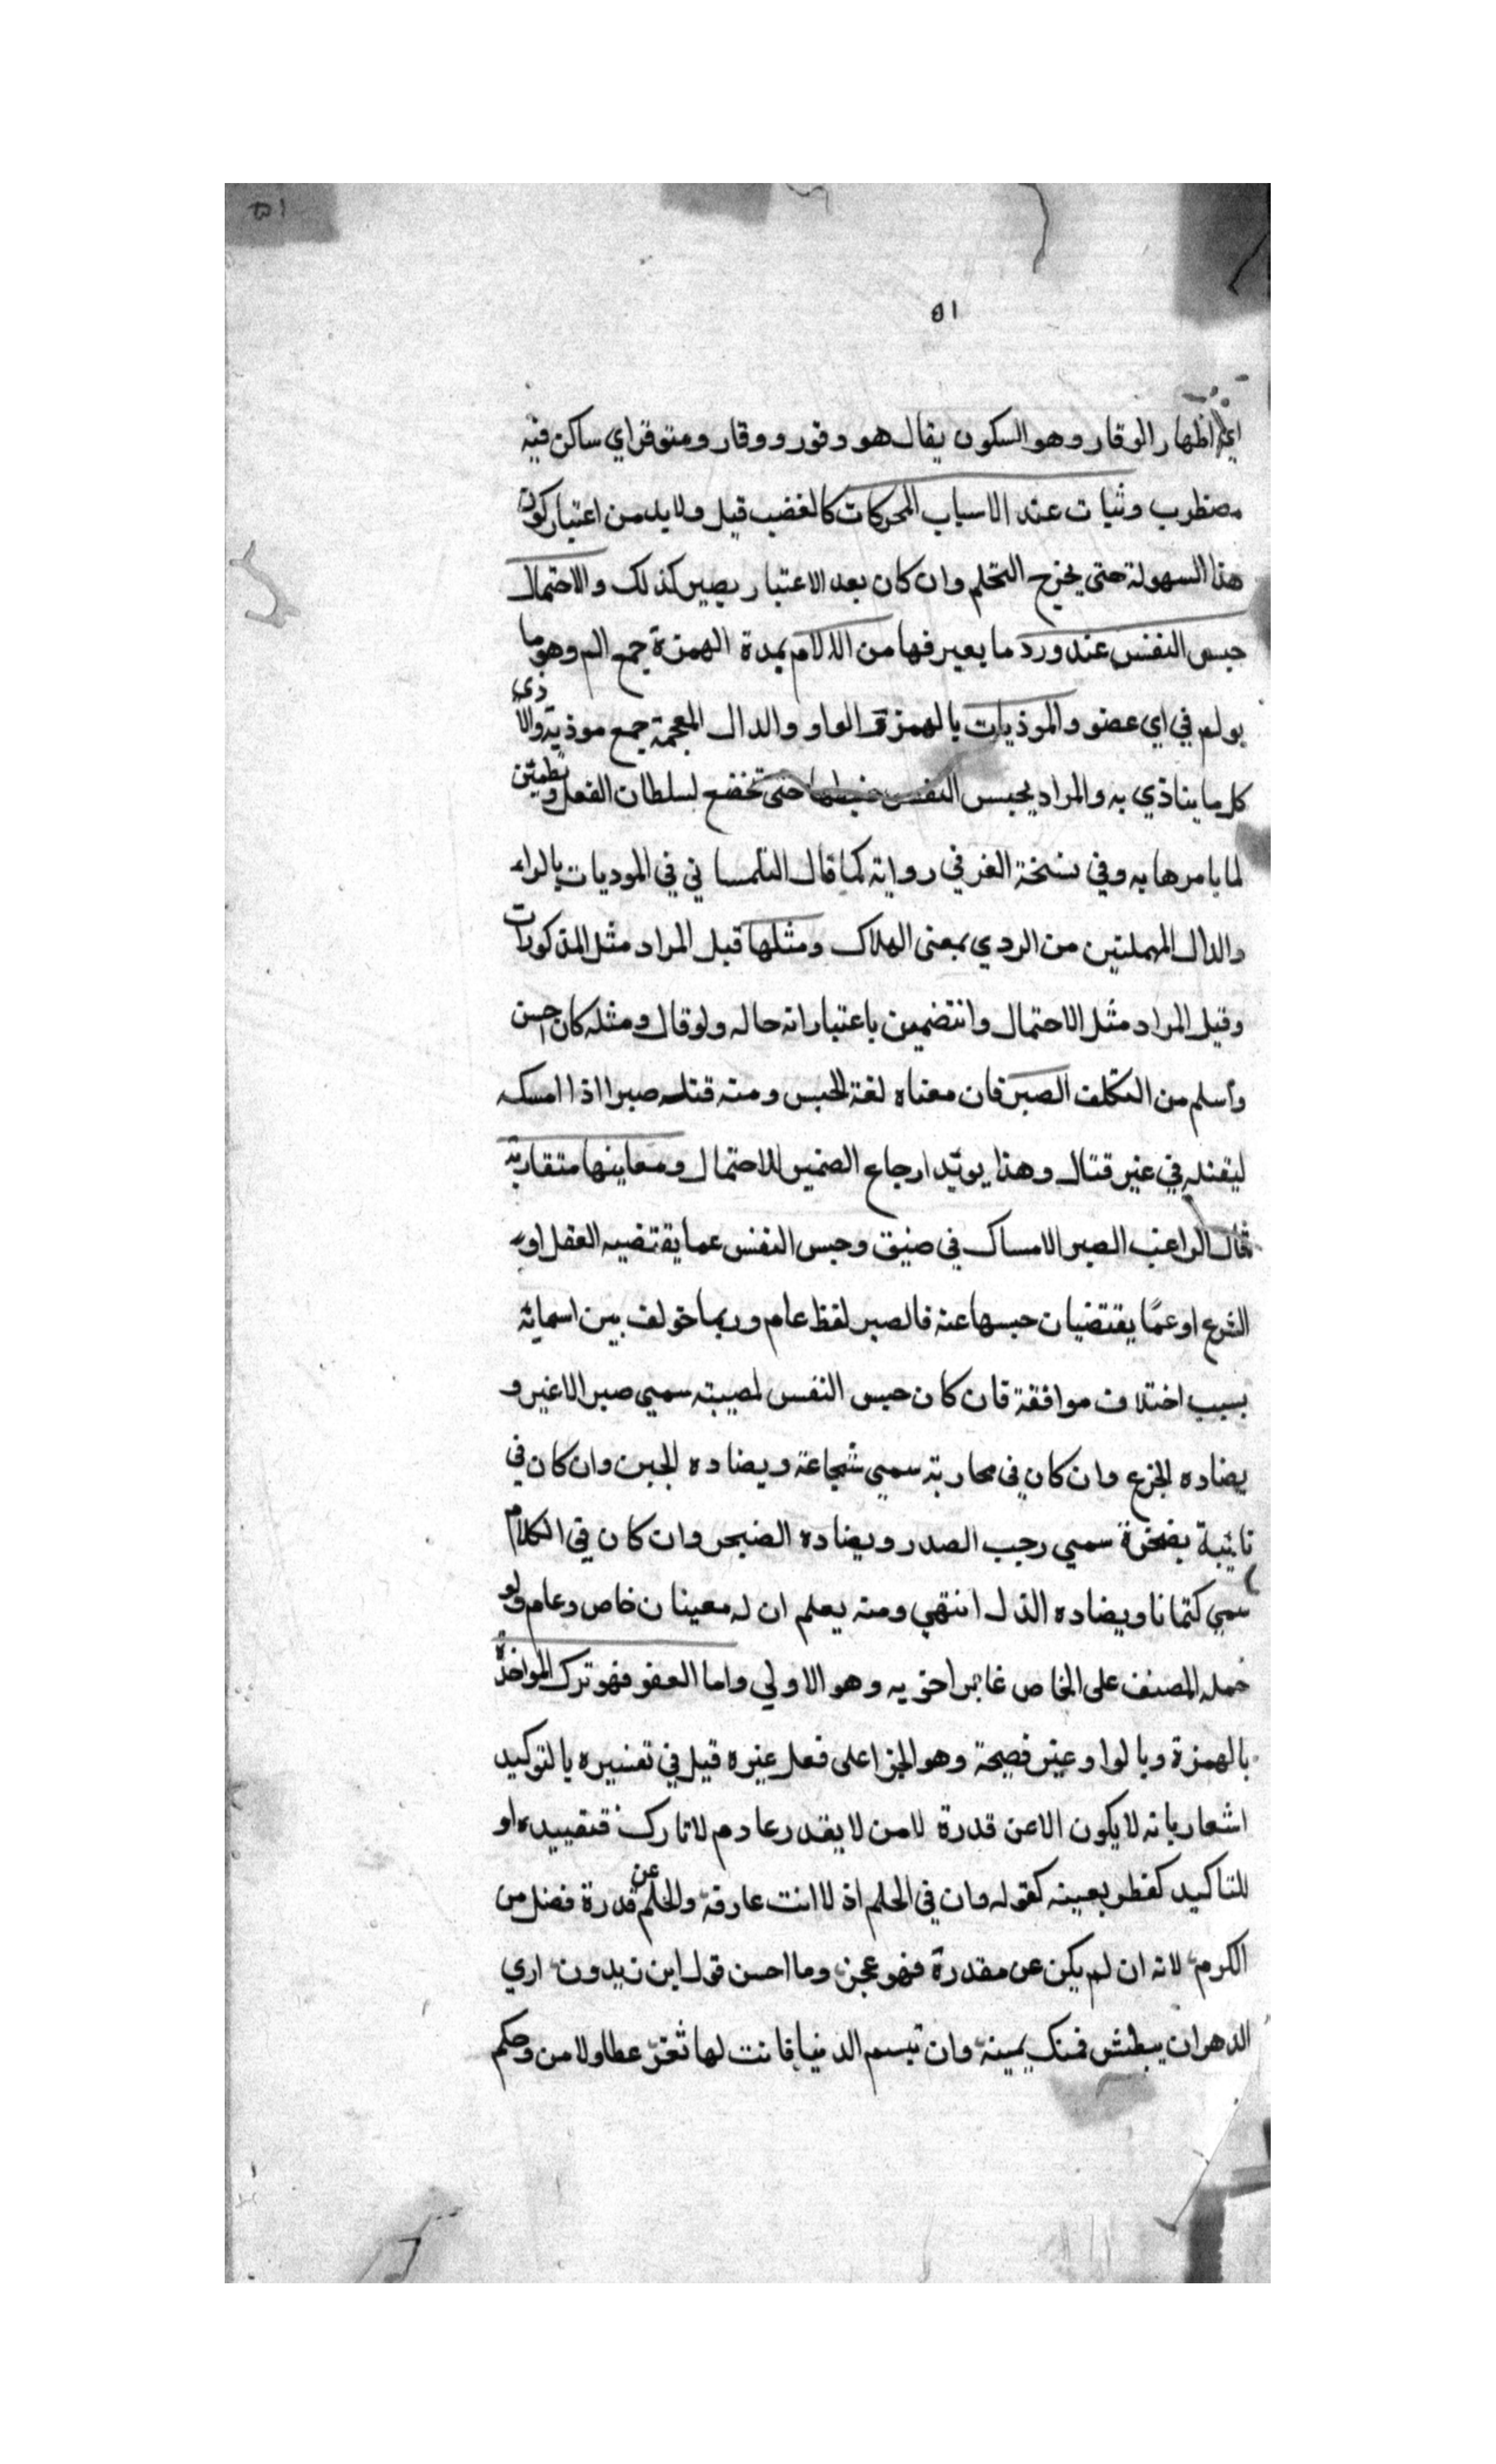 ٥١
٥١
اي اظهار الوقار وهو السكون يقال هو وقور ووقار ومتوقر اي ساكن فيه
مضطرب وثبات عند الاسباب المحركات كالغضب قيل ولا بد من اعتبار كون
هذا السهولة حتى يخرج التحلم وان كان بعد الاعتبار يصير كذلك والاحتمال
حبس النفس عند ورد ما يعير فها من الالام بمدة الهمزة جمع الم وهو ما
يولم في اي عضو والموذيات بالهمزة والواو والدال المعجمة جمع موذية والاذى
كل ما يتاذي به والمراد بحبس النفس ضبطها حتى تخضع لسلطان الفعل وتطمئن
لما يامرها به وفي نسخة الغرفي رواية كما قال التلمساني في الموديات بالراء
والدال المهملتين من الردي بمعنى الهلاك ومثلها قيل المراد مثل المذكورات
وقيل المراد مثل الاحتمال وانتضمين باعتبار انه حاله ولو قال ومثله كان احسن
وأسلم من التكلف الصبر فان معناه لغة الحبس ومنه قتله صبرا اذا امسكه
ليقتله في غير قتال وهذا يويد ارجاع الضمير للاحتمال ومعاينها متقاربة
قال الراغب الصبر الامساك في ضيق وحبس النفس عما يقتضيه العقل او
الشرع او عمّا يقتضيان حبسها عنه فالصبر لفظ عام وربما خولف بين اسمائه
بسبب اختلاف موافقة فان كان حبس النفس لمصيبته سمي صبر الاغير و
يضاده الجزع وان كان في محاربة سمي شجاعة ويضاده الجبن وان كان في
نايبة بضجرة سمي رحب الصدر ويضاده الضجر وان كان في الكلام
سمي كتمانا ويضاده الذل انتهي ومنه يعلم ان له معينان خاص وعام ولو
حمله المصنف على الخاص غايرا خويه وهو الاولي واما العفو فهو ترك المواخذة
بالهمزة وبالواو غير فصيحة وهو الجزا على فعل غيره قيل في تفسيره بالتوكيد
اشعار بانه لا يكون الا عن قدرة لا من لا يقدر عادم لا تارك فتقييده او
للتاكيد كفطر بعينه كقوله وان في الحلم اذ لا انت عارفة والحلم عن قدرة فضل من
الكرم لانه ان لم يكن عن مقدرة فهو عجز وما احسن قول ابن زيدون اري
الدهر ان يبطش فمنك يمينه وان تبسم الدنيا فانت لها ثغر عطا ولا من وحكم